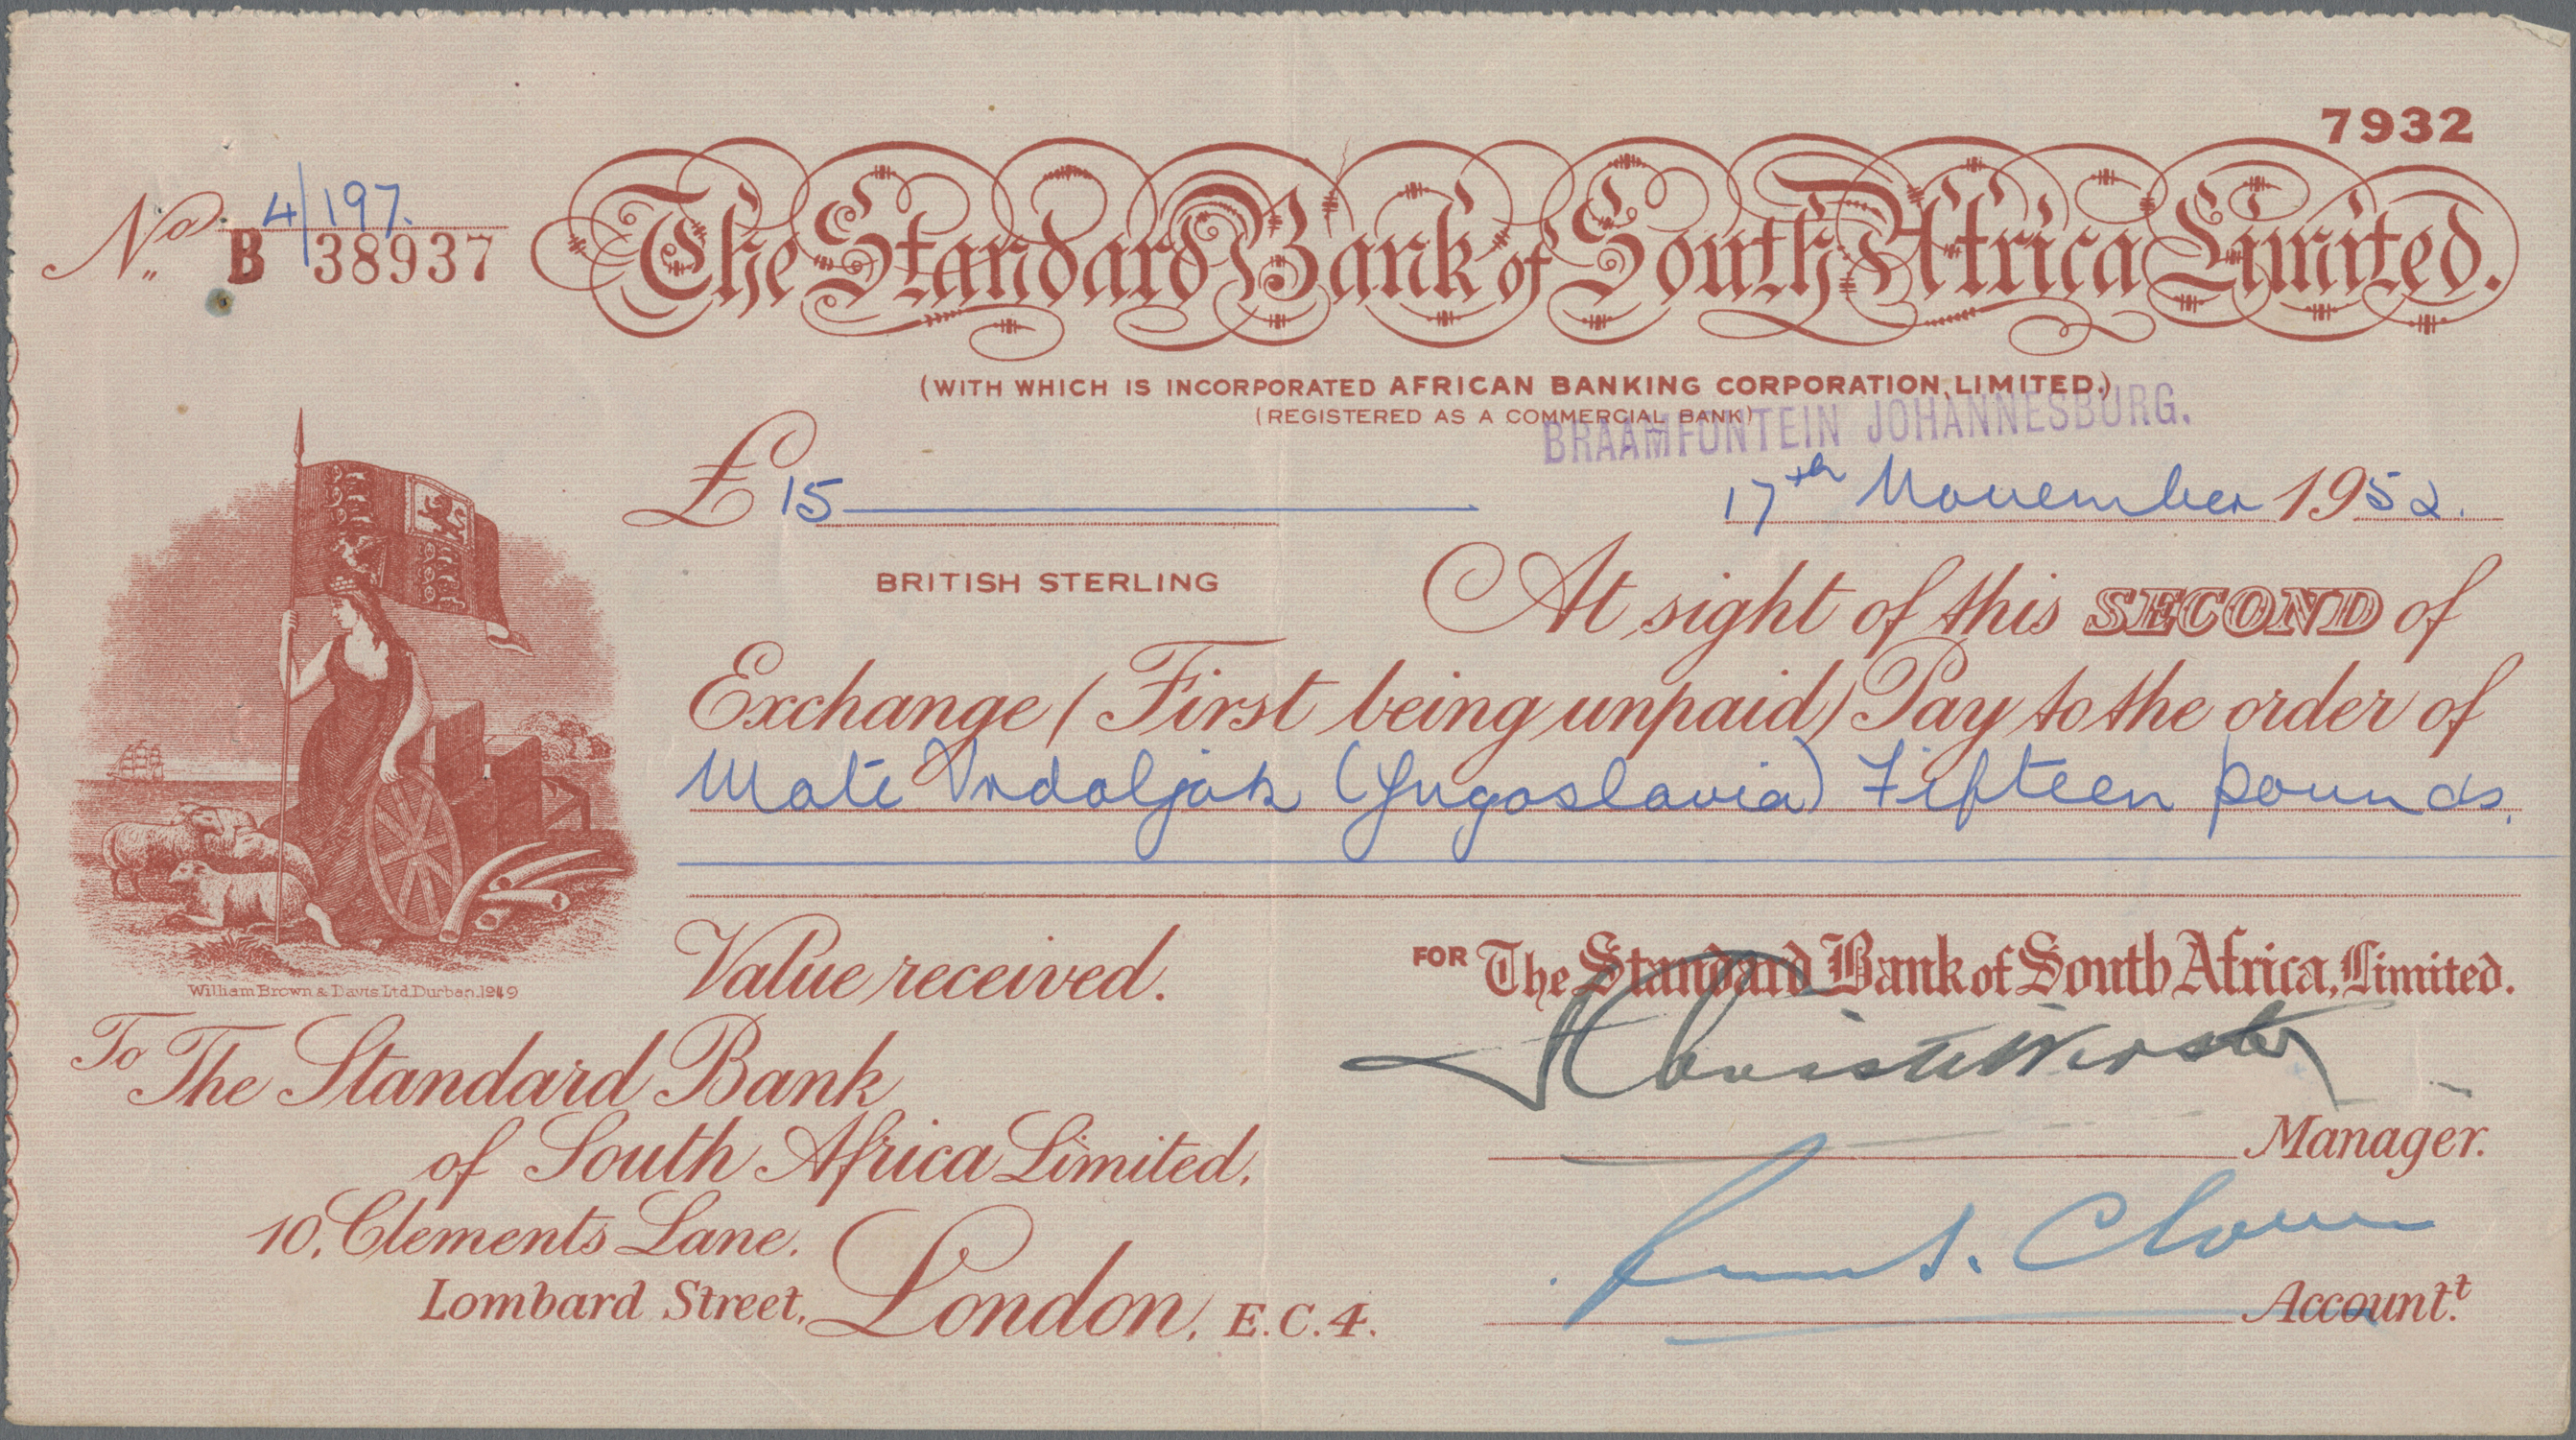 7932
No. B 4/197.
38937
The Standard Bank of South Africa Limited.
(WITH WHICH IS INCORPORATED AFRICAN BANKING CORPORATION, LIMITED.)
(REGISTERED AS A COMMERCIAL BANK)
BRAAMFONTEIN JOHANNESBURG.
£ 15
17th November 1952.
BRITISH STERLING
At sight of this SECOND of
Exchange (First being unpaid) Pay to the order of
Mate Vrdoljak (Yugoslavia) Fifteen pounds.
Value received.
FOR The Standard Bank of South Africa, Limited.
William Brown & Davis Ltd. Durban. 1949
To The Standard Bank
of South Africa Limited,
10, Clements Lane.
Lombard Street, London, E.C.4.
Manager.
Account.t